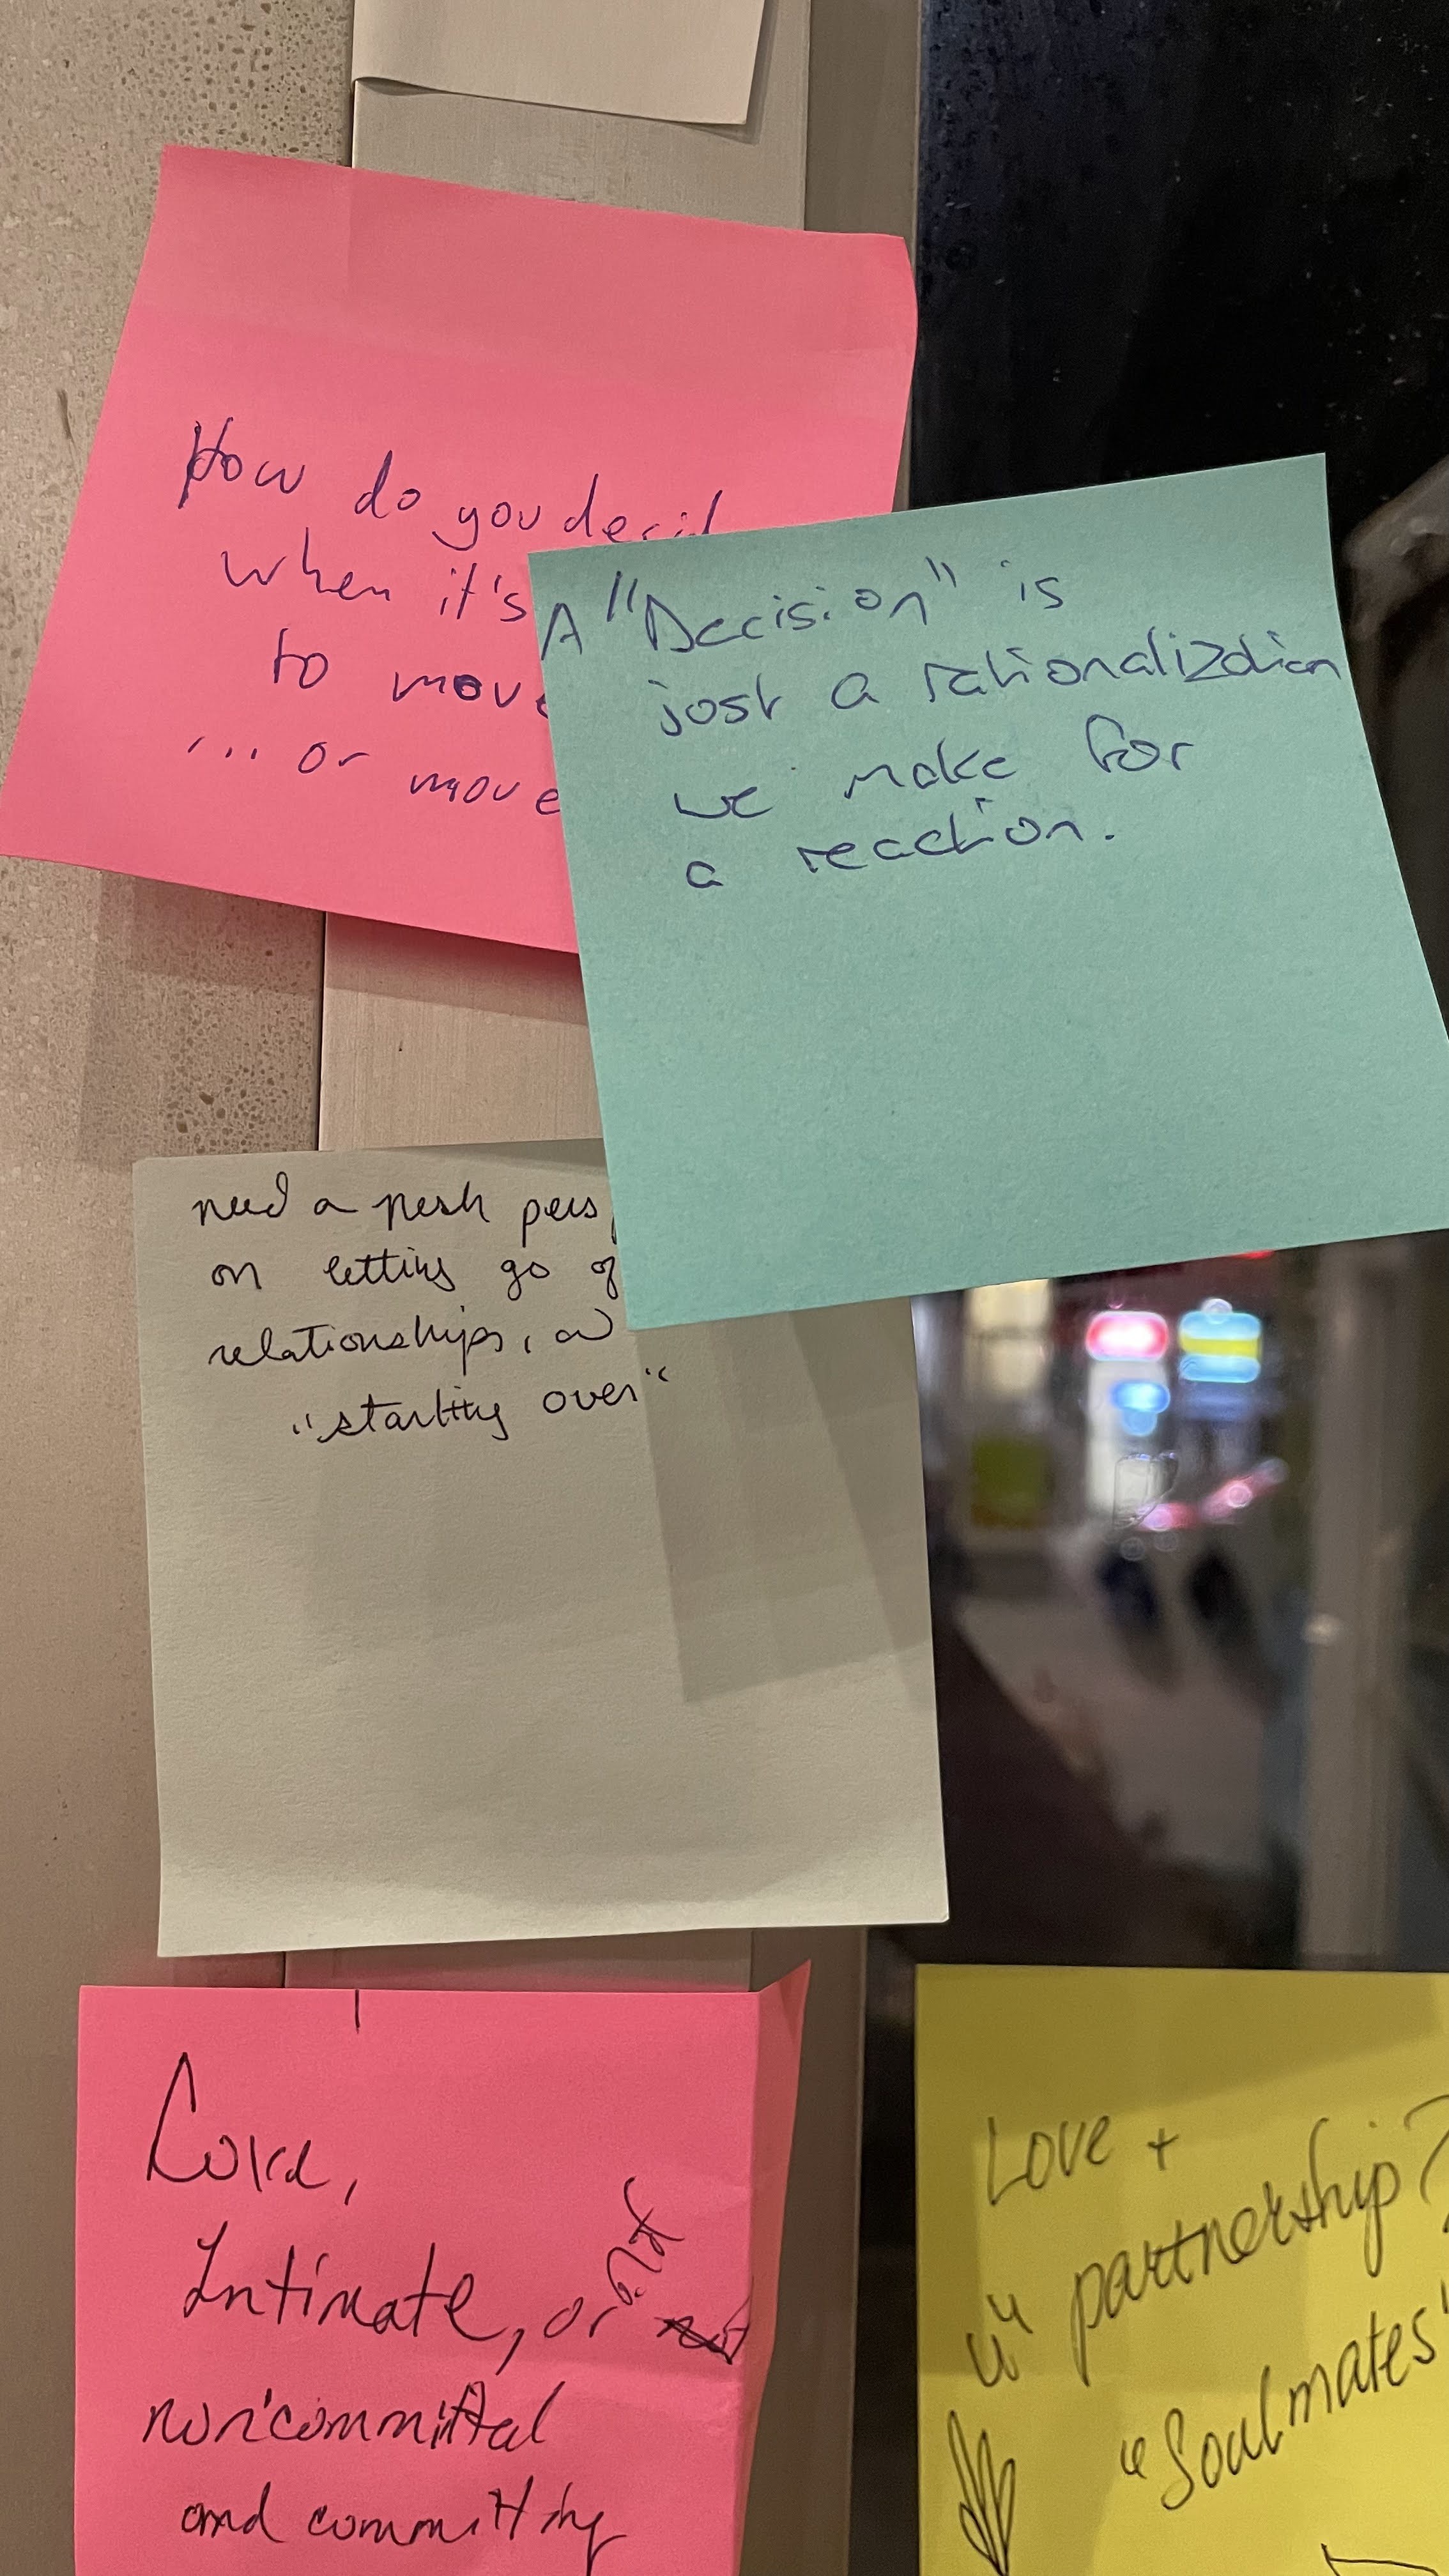 How do you decid
when it's
to move
... or move
A "Decision" is
just a rationalization
we make for
a reaction.
need a fresh pers
on letting go of
relationships, or
"starting over"
Love,
Intimate, or
noncommittal
and committing
Love +
partnership?
"Soulmates"